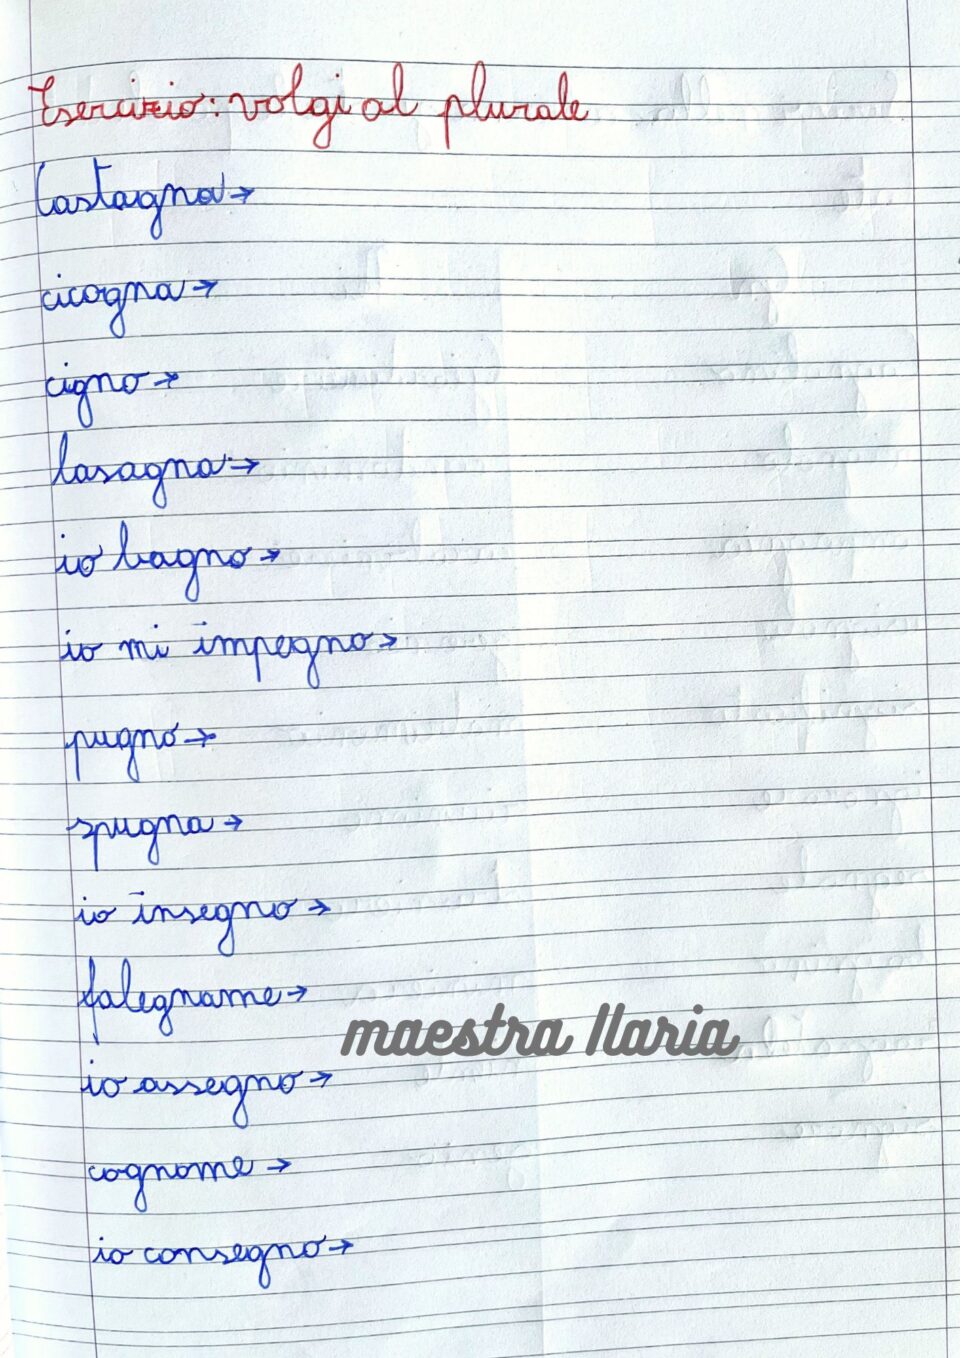 Esercizio: volgi al plurale
Castagna →
cicogna →
cigno →
lasagna →
io bagno →
io mi impegno →
pugno →
spugna →
io insegno →
falegname →
maestra Ilaria
io assegno →
cognome →
io consegno →